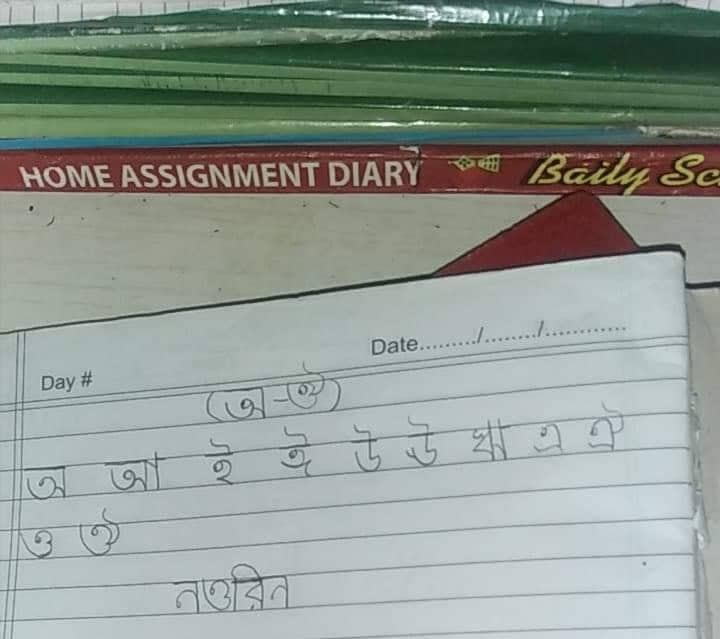 HOME ASSIGNMENT DIARY Baily Sc
Date........./........./.............
Day #
(অ-ঔ)
অ আ ই ঈ উ ঊ ঋ এ ঐ
ও ঔ
নওরিন